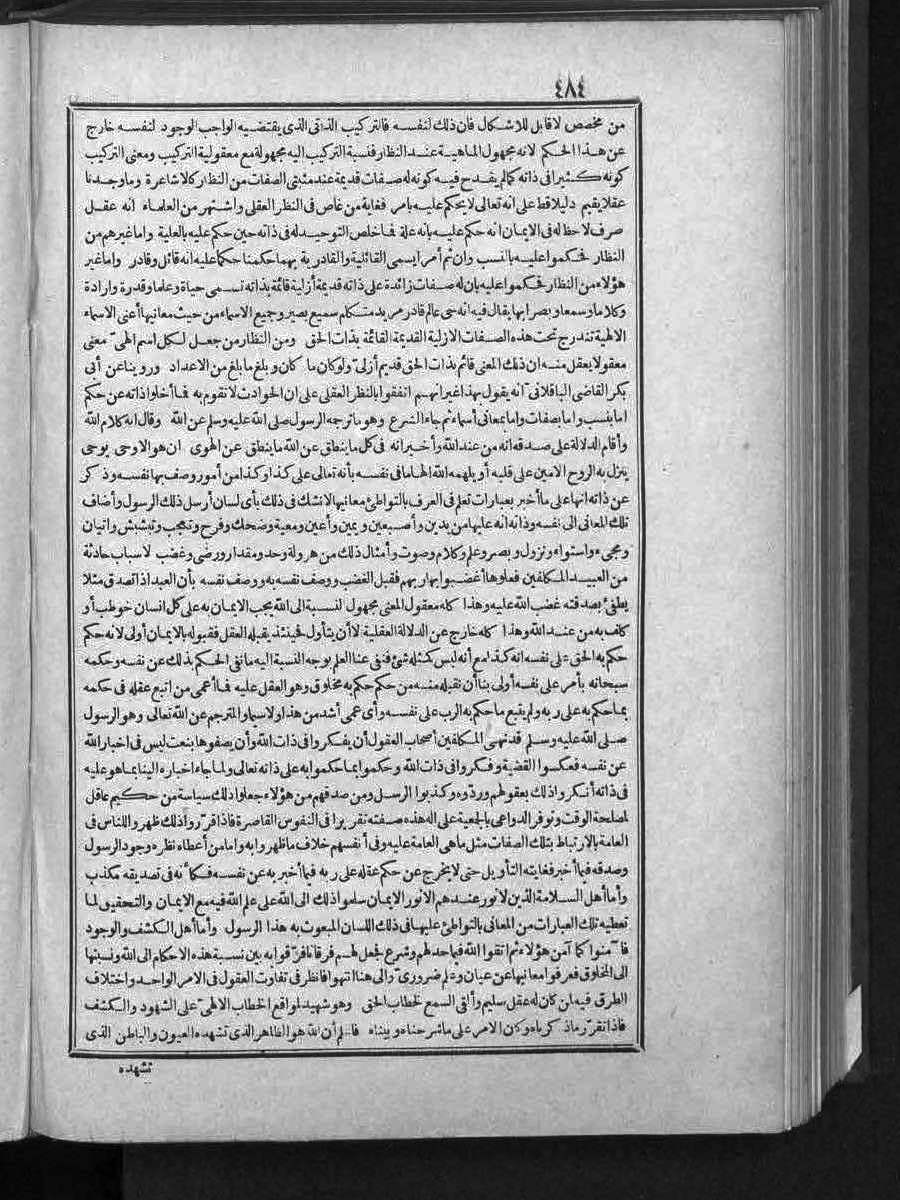 ٤٨٤
من مخصص لا قابل للاشكال فان ذلك لنفسه فالتركيب الذاتى الذى يقتضيه الواجب الوجود لنفسه خارج
عن هذا الحكم لانه مجهول الماهية عند النظار فنسبة التركيب اليه مجهولة مع معقولية التركيب ومعنى التركيب
كونه كثيرا فى ذاته كما لم يقدح فيه كونه له صفات قديمة عند مثبتى الصفات من النظار كالاشاعرة وما وجدنا
عقلا يقيم دليلا قط على انه تعالى لا يحكم عليه بامر فغاية من غاص فى النظر العقلى واشتهر من العلماء انه عقل
صرف لاحظ له فى الايمان انه حكم عليه بانه علة فما خلص التوحيد له فى ذاته حين حكم عليه بالعلية واما غيرهم من
النظار فحكموا عليه بالنسب وان ثم أمرا يسمى القائلية والقادرية بهما حكمنا حكما عليه انه قائل وقادر واما غير
هؤلاء من النظار فحكموا عليه بان له صفات زائدة على ذاته قديمة أزلية قائمة بذاته تسمى حياة وعلما وقدرة وارادة
وكلاما وسمعا وبصرا بها يقال فيه انه حى عالم قادر مريد متكلم سميع بصير وجميع الاسماء من حيث معانيها أعنى الاسماء
الالهية تندرج تحت هذه الصفات الازلية القديمة القائمة بذات الحق ومن النظار من جعل لكل اسم الهىّ معنى
معقولا يعقل منه ان ذلك المعنى قائم بذات الحق قديم أزلىّ ولو كان ما كان وبلغ ما بلغ من الاعداد وروينا عن أبى
بكر القاضى الباقلانىّ انه يقول بهذا غير انهم اتفقوا بالنظر العقلى على ان الحوادث لا تقوم به فما أخلوا ذاته عن حكم
اما بنسب واما بصفات واما بمعانى أسماء ثم جاء الشرع وهو ما ترجمه الرسول صلى الله عليه وسلم عن الله وقال انه كلام الله
وأقام الدلالة على صدقه انه من عند الله وأخبر انه فى كل ما ينطق عن الله ما ينطق عن الهوى ان هو الا وحى يوحى
ينزل به الروح الامين على قلبه أو يلهمه الله الهاما فى نفسه بأنه تعالى على كذا وكذا من أمور وصف بها نفسه وذكر
عن ذاته انها على ما أخبر بعبارات تعلم فى العرف بالتواطئ معانيها لا نشك فى ذلك بأى لسان أرسل ذلك الرسول وأضاف
تلك المعانى الى نفسه وذاته انه عليها من يدين وأصبعين ويمين وأعين ومعية وضحك وفرح وتعجب وتبشبش واتيان
ومجىء واستواء ونزول وبصر وعلم وكلام وصوت وأمثال ذلك من هرولة وحد ومقدار ورضى وغضب لاسباب حادثة
من العبيد المكلفين فعلوها أغضبوا بها ربهم فقبل الغضب ووصف نفسه به ووصف نفسه بأن العبد اذا تصدق مثلا
يطفئ بصدقته غضب الله عليه وهذا كله معقول المعنى مجهول النسبة الى الله يجب الايمان به على كل انسان خوطب أو
كلف به من عند الله وهذا كله خارج عن الدلالة العقلية الا أن يتأول فحينئذ يقبله العقل فقبوله بالايمان أولى لانه حكم
حكم به الحق على نفسه انه كذا مع أنه ليس كمثله شئ فنفى عنا العلم بوجه النسبة اليه ما نفى الحكم بذلك عن نفسه وحكمه
سبحانه بأمر على نفسه أولى بنا أن نقبله منه من حكم حكم به مخلوق وهو العقل عليه فما أعمى من اتبع عقله فى حكمه
بما حكم به على ربه ولم يتبع ما حكم به الرب على نفسه وأى عمى أشد من هذا ولا سيما والمترجم عن الله تعالى وهو الرسول
صلى الله عليه وسلم قد نهى المكلفين أصحاب العقول أن يفكروا فى ذات الله وأن يصفوها بنعت ليس فى اخبار الله
عن نفسه فعكسوا القضية وفكروا فى ذات الله وحكموا بما حكموا به على ذاته تعالى ولما جاء اخباره الينا بما هو عليه
فى ذاته أنكروا ذلك بعقولهم وردّوه وكذبوا الرسل ومن صدقهم من هؤلاء جعلوا ذلك سياسة من حكيم عاقل
لمصلحة الوقت وتوفر الدواعى بالجمعية على اله هذه صفته تقريرا فى النفوس القاصرة فاذا قرّروا ذلك ظهروا للناس فى
العامة بالارتباط بتلك الصفات مثل ما هى العامة عليه وفى أنفسهم خلاف ما ظهروا به واما من أعطاه نظره وجود الرسول
وصدقه فيما أخبر فغايته التأويل حتى لا يخرج عن حكم عقله على ربه فيما أخبر به عن نفسه فكأنه فى تصديقه مكذب
وأما أهل السلامة الذين لا نور عندهم الا نور الايمان سلموا ذلك الى الله على علم الله فيه مع الايمان والتحقيق لما
تعطيه تلك العبارات من المعانى بالتواطئ عليها فى ذلك اللسان المبعوث به هذا الرسول وأما أهل الكشف والوجود
فآمنوا كما آمن هؤلاء ثم اتقوا الله فيما حد لهم وشرع فجعل لهم فرقانا فرّقوا به بين نسبة هذه الاحكام الى الله ونسبتها
الى المخلوق فعرفوا معانيها عن عيان وعلم ضرورىّ والى هنا انتهوا فانظر فى تفاوت العقول فى الامر الواحد واختلاف
الطرق فيه لمن كان له عقل سليم وألقى السمع لخطاب الحق وهو شهيد لمواقع الخطاب الالهىّ على الشهود والكشف
فاذا تقرّر ما ذكرناه وكان الامر على ما شرحناه وبيناه فاعلم أن الله هو الظاهر الذى تشهده العيون والباطن الذى
تشهده